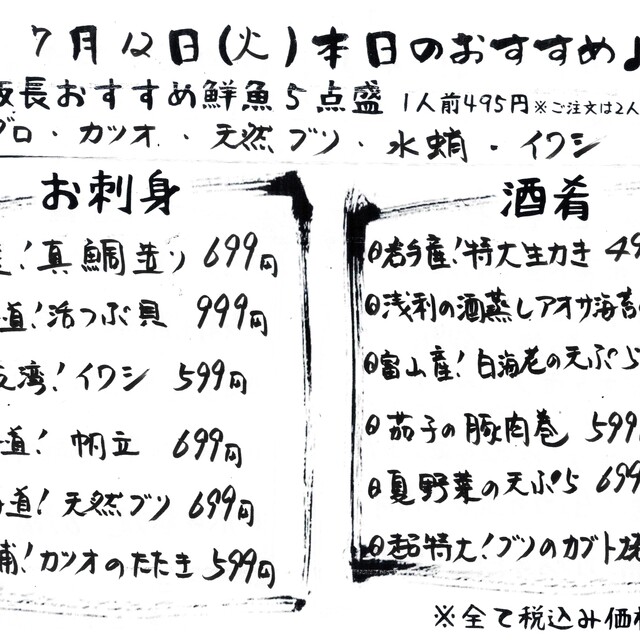 7月12日(火)本日のおすすめ♪
板長おすすめ鮮魚5点盛 1人前495円※ご注文は2人
グロ・カツオ・天然ブリ・水蛸・イワシ
お刺身
産!真鯛造り 699円
道!活つぶ貝 999円
湾!イワシ 599円
道!帆立 699円
道!天然ブリ 699円
浦!カツオのたたき 599円
酒肴
岩手産!特大生カキ 49
浅利の酒蒸しアオサ海苔
富山産!白海老の天ぷら
茄子の豚肉巻 599
夏野菜の天ぷら 699
超特大!ブリのカブト
※全て税込み価格